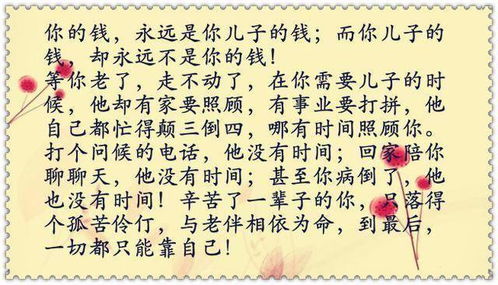 你的钱，永远是你儿子的钱；而你儿子的
钱，却永远不是你的钱！
等你老了，走不动了，在你需要儿子的时
候，他却有家要照顾，有事业要打拼，他
自己都忙得颠三倒四，哪有时间照顾你。
打个问候的电话，他没有时间；回家陪你
聊聊天，他没有时间；甚至你病倒了，他
也没有时间！辛苦了一辈子的你，只落得
个孤苦伶仃，与老伴相依为命，到最后，
一切都只能靠自己！